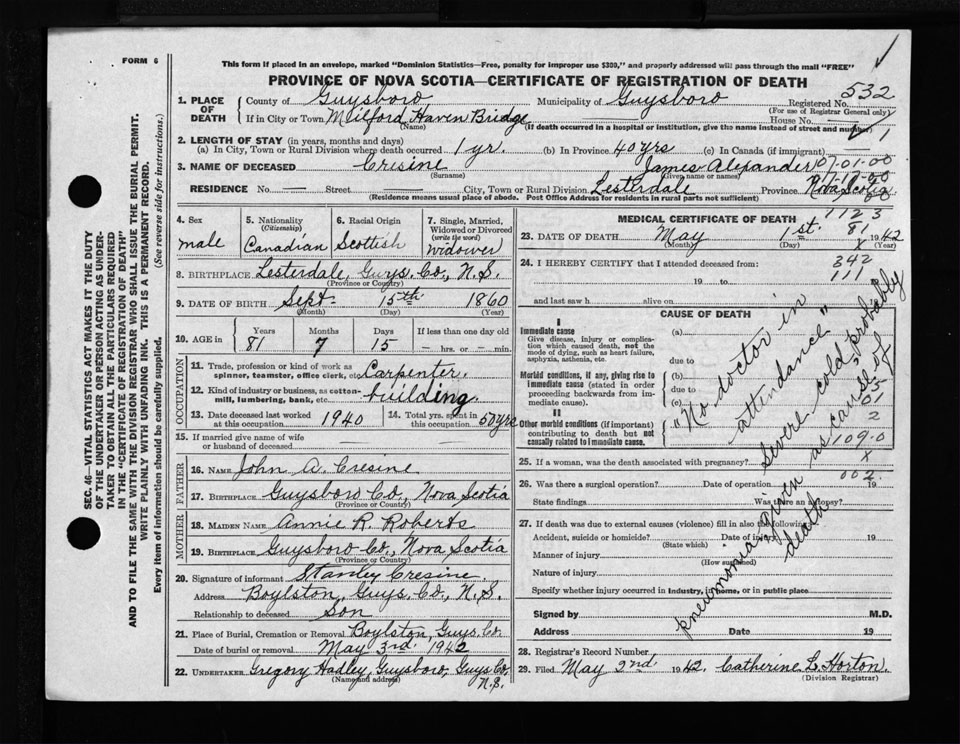 FORM 6
This form if placed in an envelope, marked "Dominion Statistics—Free, penalty for improper use $300," and properly addressed will pass through the mail "FREE"
PROVINCE OF NOVA SCOTIA—CERTIFICATE OF REGISTRATION OF DEATH
532
1. PLACE OF DEATH County of Guysboro Municipality of Guysboro Registered No.
(For use of Registrar General only)
If in City or Town Milford Haven Bridge House No. —
(Name) (If death occurred in a hospital or institution, give the name instead of street and number) 1
2. LENGTH OF STAY (in years, months and days)
(a) In City, Town or Rural Division where death occurred 1 yr. (b) In Province 40 yrs (c) In Canada (if immigrant) —
3. NAME OF DECEASED Cresine James Alexander 07-01-00
(Surname) (Given name or names)
RESIDENCE No. — Street — City, Town or Rural Division Lesterdale Province Nova Scotia
(Residence means usual place of abode. Post Office Address for residents in rural parts not sufficient)
4. Sex male
5. Nationality (Citizenship) Canadian
6. Racial Origin Scottish
7. Single, Married, Widowed or Divorced (write the word) widower
8. BIRTHPLACE Lesterdale, Guys. Co., N.S.
(Province or Country)
9. DATE OF BIRTH Sept. 15th 1860
(Month) (Day) (Year)
10. AGE in Years Months Days If less than one day old
81 7 15 — hrs. or — min.
OCCUPATION
11. Trade, profession or kind of work as spinner, teamster, office clerk, etc. Carpenter
12. Kind of industry or business, as cotton-mill, lumbering, bank, etc. building
13. Date deceased last worked at this occupation 1940
14. Total yrs. spent in this occupation 50 yrs
15. If married give name of wife or husband of deceased —
FATHER
16. NAME John A. Cresine
17. BIRTHPLACE Guysboro Co., Nova Scotia
(Province or Country)
MOTHER
18. MAIDEN NAME Annie R. Roberts
19. BIRTHPLACE Guysboro Co., Nova Scotia
(Province or Country)
20. Signature of informant Stanley Cresine
Address Boylston, Guys. Co., N.S.
Relationship to deceased Son
21. Place of Burial, Cremation or Removal Boylston, Guys. Co.
Date of burial or removal May 3rd 1942
22. UNDERTAKER Gregory Hadley, Guysboro, Guys. Co., N.S.
(Name and address)
MEDICAL CERTIFICATE OF DEATH
1123
81
23. DATE OF DEATH May 1st. 1942
(Month) (Day) (Year)
24. I HEREBY CERTIFY that I attended deceased from:
342
111
19 to 19
and last saw h alive on
CAUSE OF DEATH
I
Immediate cause
Give disease, injury, or complication which caused death, not the mode of dying, such as heart failure, asphyxia, asthenia, etc.
(a)
due to
Morbid conditions, if any, giving rise to immediate cause (stated in order proceeding backwards from immediate cause).
(b)
due to
(c)
II
Other morbid conditions (if important) contributing to death but not causally related to immediate cause.
"No doctor in attendance"
Severe cold probably
pneumonia given as cause of death
2
109.0
25. If a woman, was the death associated with pregnancy? x
002
26. Was there a surgical operation? Date of operation 19
State findings Was there an autopsy?
27. If death was due to external causes (violence) fill in also the following:
Accident, suicide or homicide? Date of injury 19
(State which)
Manner of injury
(How sustained)
Nature of injury
Specify whether injury occurred in industry, in home, or in public place
Signed by M.D.
Address Date 19
28. Registrar's Record Number
29. Filed May 2nd 1942. Catherine L. Horton.
(Division Registrar)
SEC. 46—VITAL STATISTICS ACT MAKES IT THE DUTY
OF THE UNDERTAKER OR PERSON ACTING AS UNDERTAKER
TO OBTAIN ALL THE PARTICULARS REQUIRED
IN THE "CERTIFICATE OF REGISTRATION OF DEATH"
AND TO FILE THE SAME WITH THE DIVISION REGISTRAR WHO SHALL ISSUE THE BURIAL PERMIT.
WRITE PLAINLY WITH UNFADING INK. THIS IS A PERMANENT RECORD.
Every item of information should be carefully supplied. (See reverse side for instructions.)